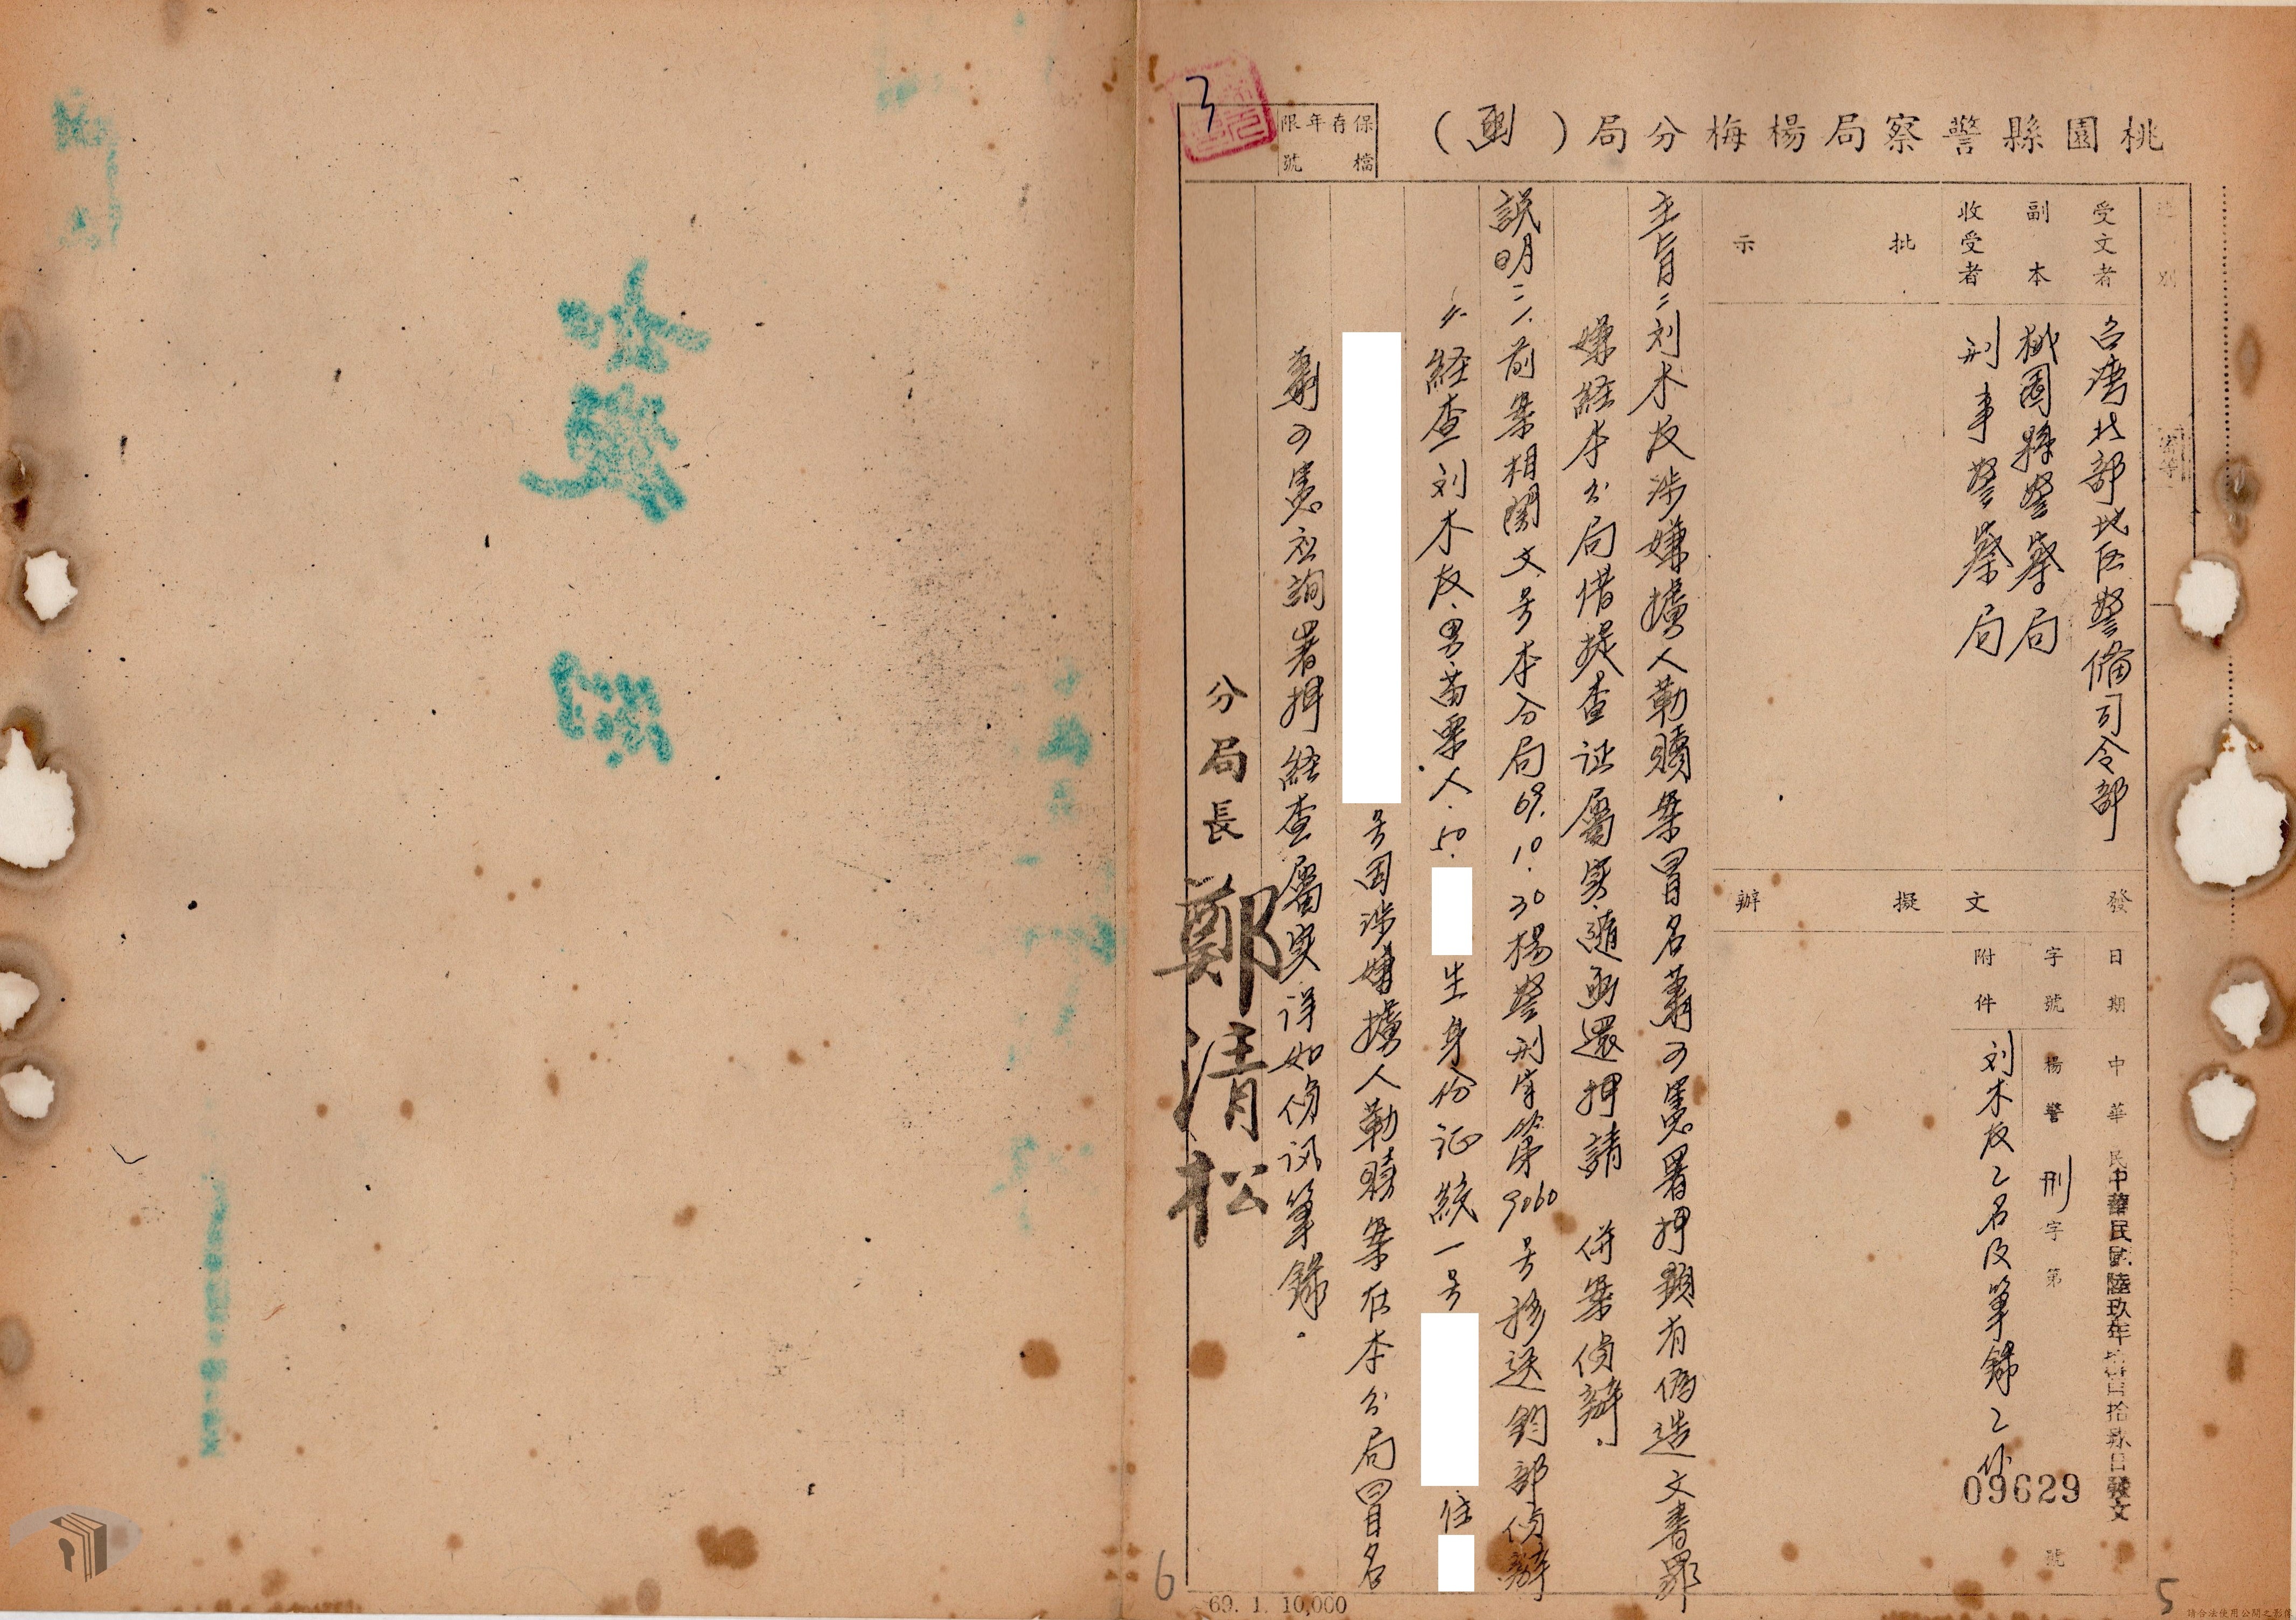 桃園縣警察局楊梅分局（函）
保存年限
檔號
3
速別
密等
受文者
台湾北部地区警備司令部
副本
收受者
桃園縣警察局
刑事警察局
發文
日期
中華民國陸玖年
日發文
字號
楊警刑字第09629號
附件
刘木枝乙名及筆錄乙份
批示
擬辦
主旨：刘木枝涉嫌擄人勒贖案冒名蕭可憲署押顯有偽造文書罪
嫌経本分局借提查证屬実随函還押請 併案偵辦.
説明：一.前案相関文号本分局69.10.30楊警刑字第9060号移送鈞部偵辦
経查刘木枝.男.苗栗人.50.
生身份证統一号
住
号因涉嫌擄人勒贖案在本分局冒名
蕭可憲应詢署押経查屬実详如偵讯筆錄.
分局長 鄭清松
69. 1. 10,000
6
5
請合法使用公開之影像